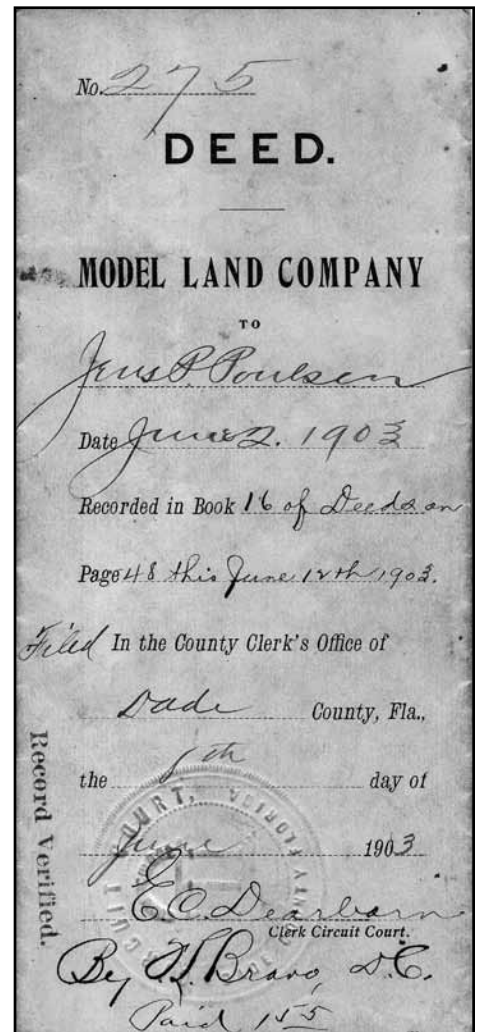 No. 275
DEED.
MODEL LAND COMPANY
TO
Jens P. Poulsen
Date June 2. 1903
Recorded in Book 16 of Deeds on
Page 48 this June 12th 1903.
Filed In the County Clerk's Office of
Dade County, Fla.,
the day of
June 1903
E.C. Dearborn
Clerk Circuit Court.
By Bravo, D.C.
Paid 155
Record Verified.